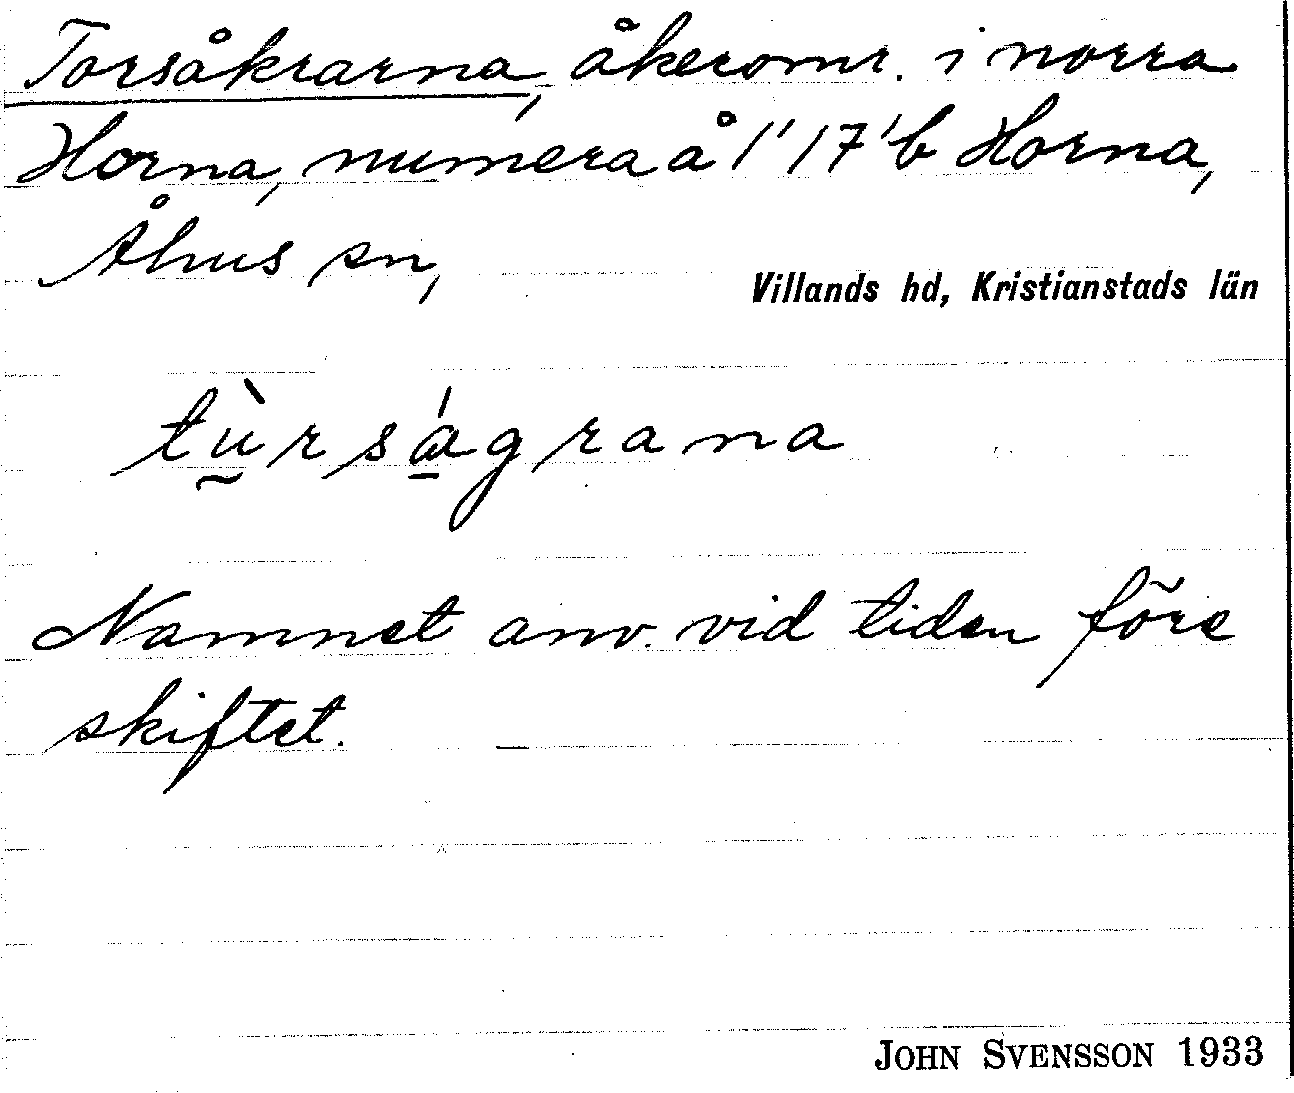 Torsåkrarna, åkeromr. i norra
Horna, numera å 1' 17'b Horna,
Åhus sn,
Villands hd, Kristianstads län
tṵ̀rságrana
Namnet anv. vid tiden före
skiftet.
JOHN SVENSSON 1933